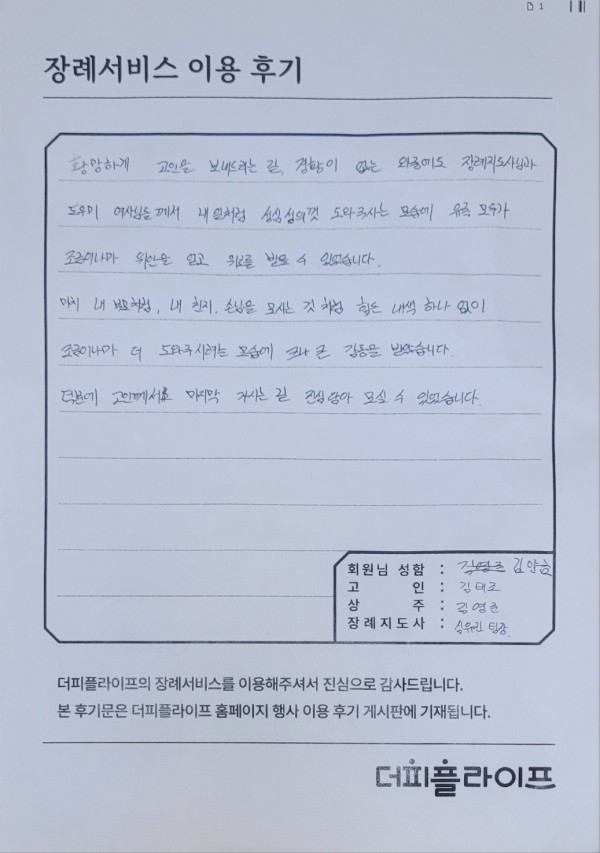 D 1
장례서비스 이용 후기
황망하게 고인을 보내드리는 길, 경황이 없는 와중에도 장례지도사님과
도우미 여사님들께서 내 일처럼 성심성의껏 도와주시는 모습에 유족 모두가
조금이나마 위안을 얻고 위로를 받을 수 있었습니다.
마치 내 부모처럼, 내 친지, 손님을 모시는 것 처럼 힘든 내색 하나 없이
조금이나마 더 도와주시려는 모습에 크나 큰 감동을 받았습니다.
덕분에 고인께서도 마지막 가시는 길 진심 담아 모실 수 있었습니다.
회원님 성함 : 김영준 김안금
고 인 : 김태조
상 주 : 김영준
장례지도사 : 팀장
더피플라이프의 장례서비스를 이용해주셔서 진심으로 감사드립니다.
본 후기문은 더피플라이프 홈페이지 행사 이용 후기 게시판에 기재됩니다.
더피플라이프